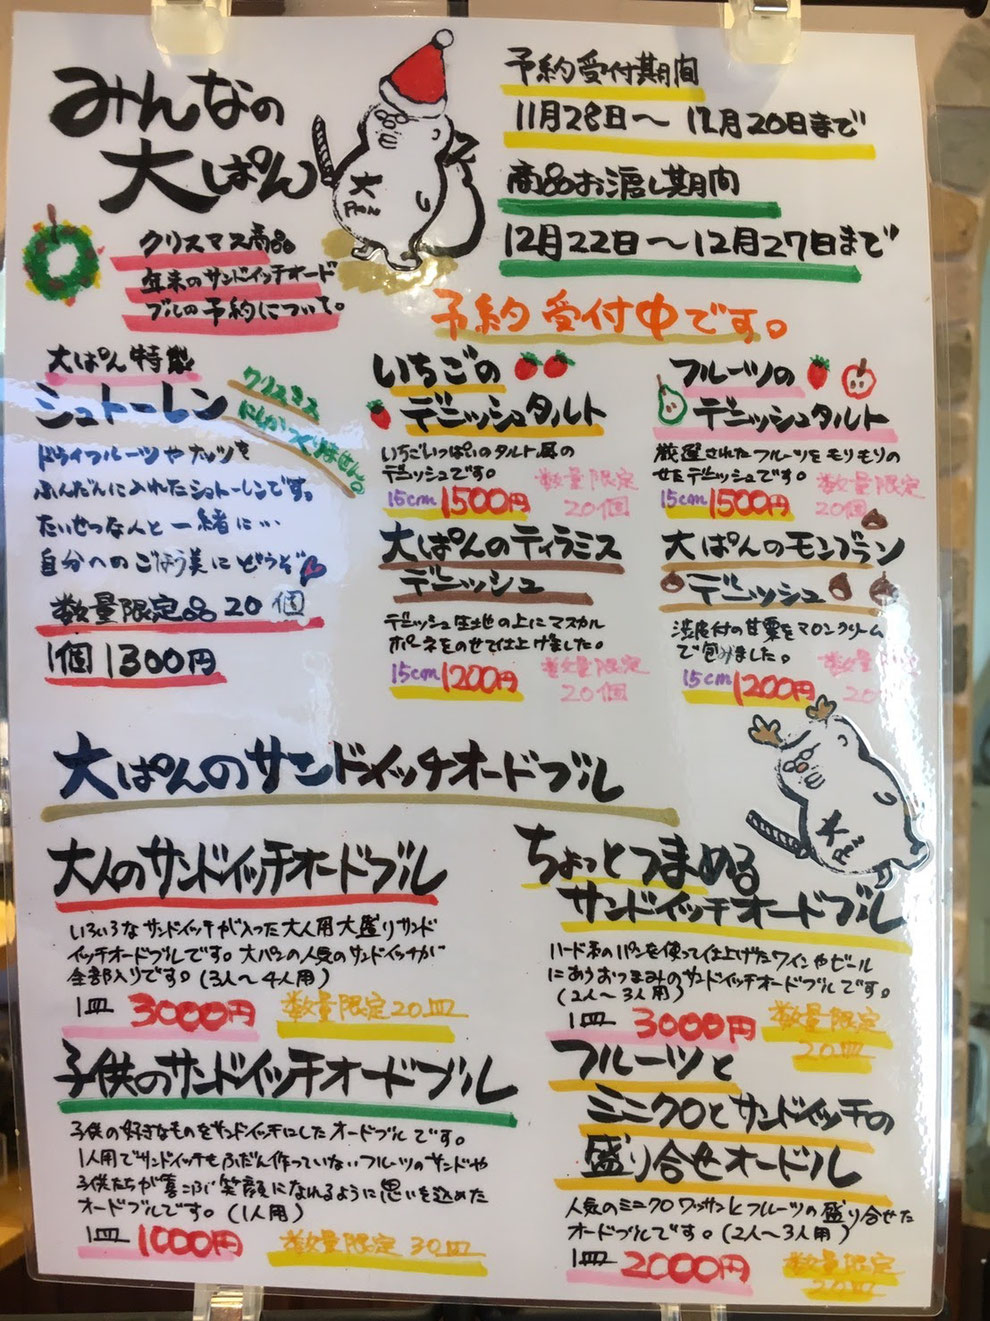 みんなの
大ぱん
大
Pan
クリスマス商品
年末のサンドイッチオード
ブルの予約について。
予約受付期間
11月28日～12月20日まで
商品お渡し期間
12月22日～12月27日まで
予約受付中です。
大ぱん特製
シュトーレン
クリスマス
にしかつくりません。
ドライフルーツやナッツを
ふんだんに入れたシュトーレンです。
たいせつな人と一緒に…
自分へのごほう美にどうぞ
数量限定品20個
1個1300円
いちごの
デニッシュタルト
いちごいっぱいのタルト風の
デニッシュです。
15cm 1500円
数量限定
20個
フルーツの
デニッシュタルト
厳選されたフルーツをモリモリの
せたデニッシュです。
15cm 1500円
数量限定
20個
大ぱんのティラミス
デニッシュ
デニッシュ生地の上にマスカル
ポーネをのせて仕上げました。
15cm 1200円
数量限定
20個
大ぱんのモンブラン
デニッシュ
渋皮付の甘栗をマロンクリーム
で包みました。
15cm 1200円
数量限定
20
大ぱんのサンドイッチオードブル
大
Pan
大人のサンドイッチオードブル
いろいろなサンドイッチが入った大人用大盛りサンド
イッチオードブルです。大パンの人気のサンドイッチが
全部入りです。(3人～4人用)
1皿 3000円 数量限定20皿
ちょっとつまめる
サンドイッチオードブル
ハード系のパンを使って仕上げたワインやビール
にあうおつまみのサンドイッチオードブルです。
(2人～3人用)
1皿 3000円 数量限定
20皿
子供のサンドイッチオードブル
子供の好きなものをサンドイッチにしたオードブルです。
1人用でサンドイッチもふだん作っていないフルーツのサンドや
子供たちが喜こぶ笑顔になれるように思いを込めた
オードブルです。(1人用)
1皿 1000円 数量限定 30皿
フルーツと
ミニクロとサンドイッチの
盛り合せオードル
人気のミニクロワッサンとフルーツの盛り合せた
オードブルです。(2人～3人用)
1皿 2000円 数量限定
20皿